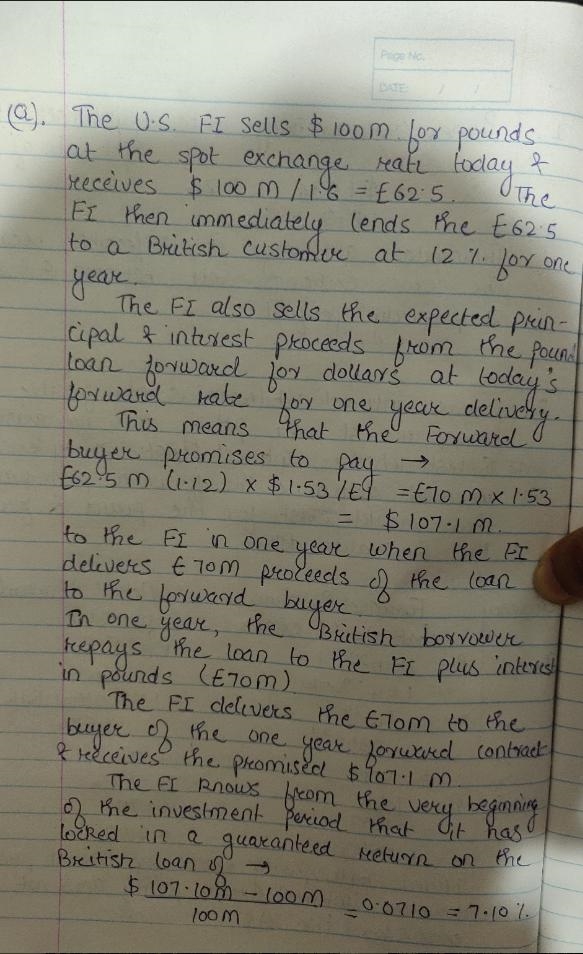 Page No.
DATE: / /
(a). The U.S. FI sells $100m for pounds
at the spot exchange rate today &
receives $100 m / 1.6 = £62.5. The
FI then immediately lends the £62.5
to a British customer at 12 %. for one
year.
The FI also sells the expected prin-
cipal & interest proceeds from the pound
loan forward for dollars at today's
forward rate for one year delivery.
This means that the Forward
buyer promises to pay →
£62.5 m (1.12) x $1.53 /£1 = £70 m x 1.53
= $107.1 m.
to the FI in one year when the FI
delivers £70m proceeds of the loan
to the forward buyer.
In one year, the British borrower
repays the loan to the FI plus interest
in pounds (£70m)
The FI delivers the £70m to the
buyer of the one year forward contract
& receives the promised $107.1 m.
The FI knows from the very beginning
of the investment period that it has
locked in a guaranteed return on the
British loan of →
$ 107.10m - 100m
100m
= 0.0710 = 7.10 %.